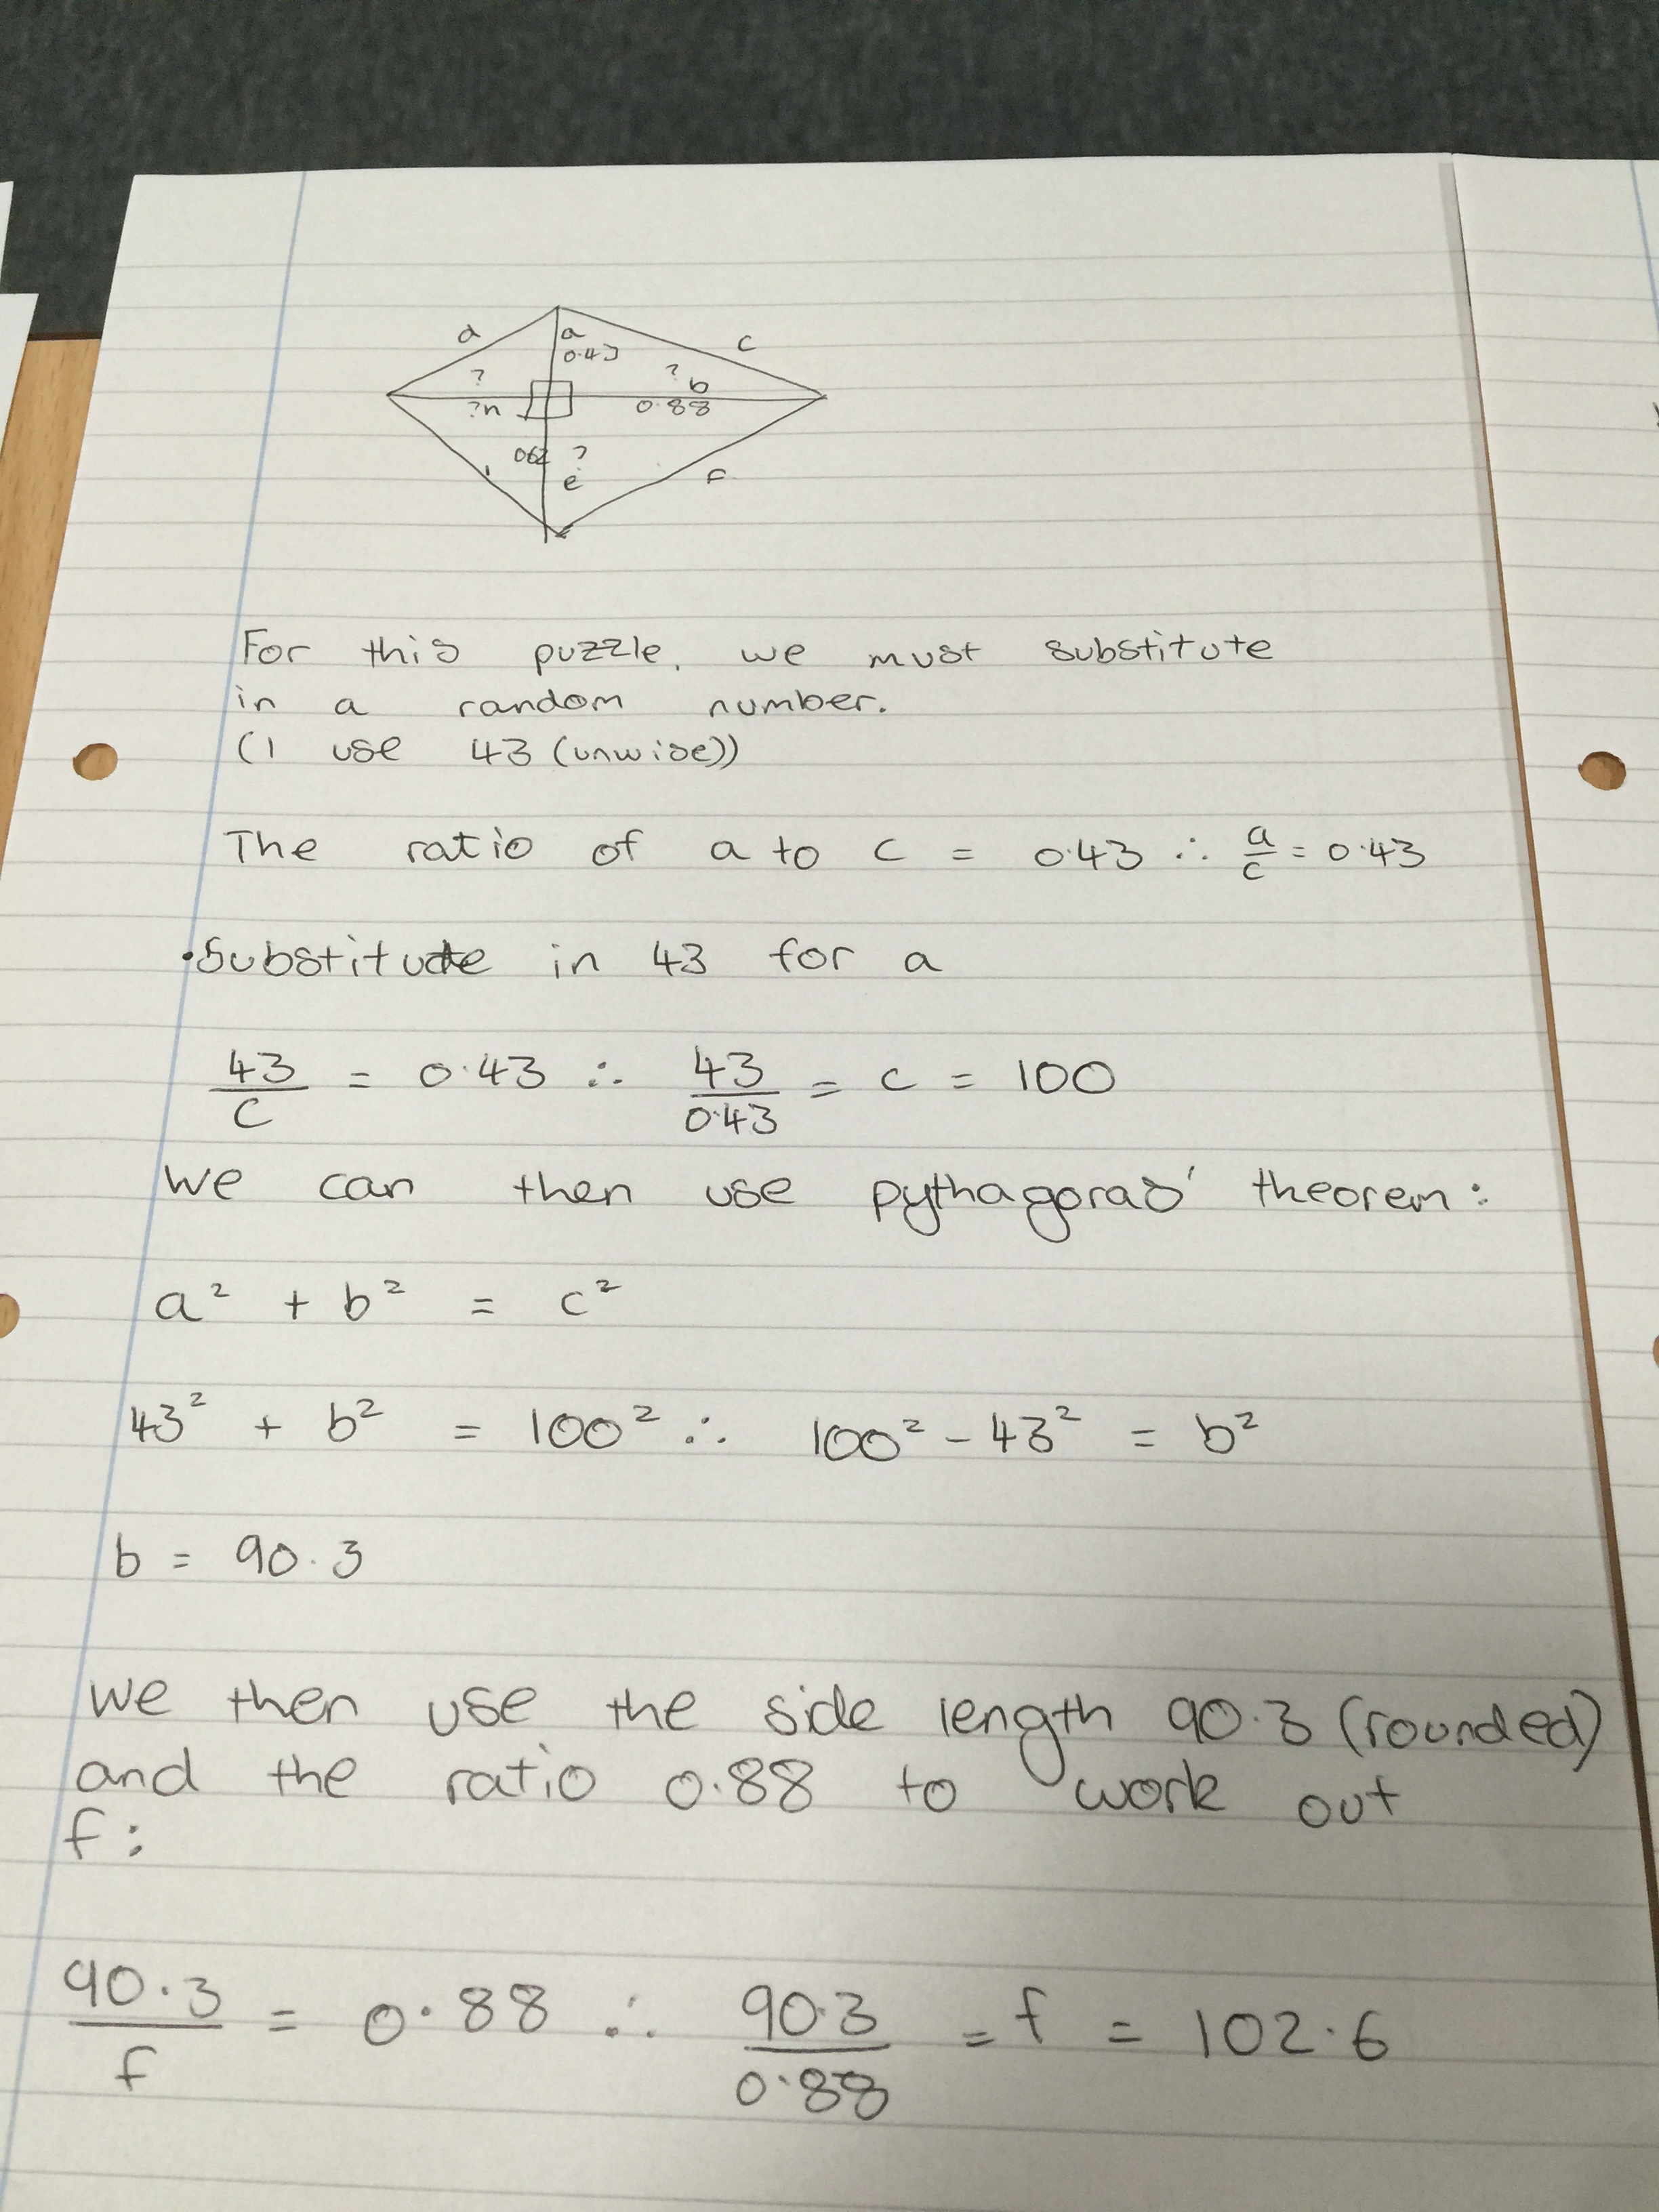 a
a
c
0.43
?
? b
?n
0.88
062 ?
e
F
For this puzzle, we must substitute
in a random number.
(I use 43 (unwise))
The ratio of a to c = 0.43 ∴ a/c = 0.43
•Substitute in 43 for a
43/c = 0.43 ∴ 43/0.43 = c = 100
We can then use pythagoras' theorem:
a² + b² = c²
43² + b² = 100² ∴ 100² - 43² = b²
b = 90.3
We then use the side length 90.3 (rounded)
and the ratio 0.88 to work out
f:
90.3/f = 0.88 ∴ 90.3/0.88 = f = 102.6